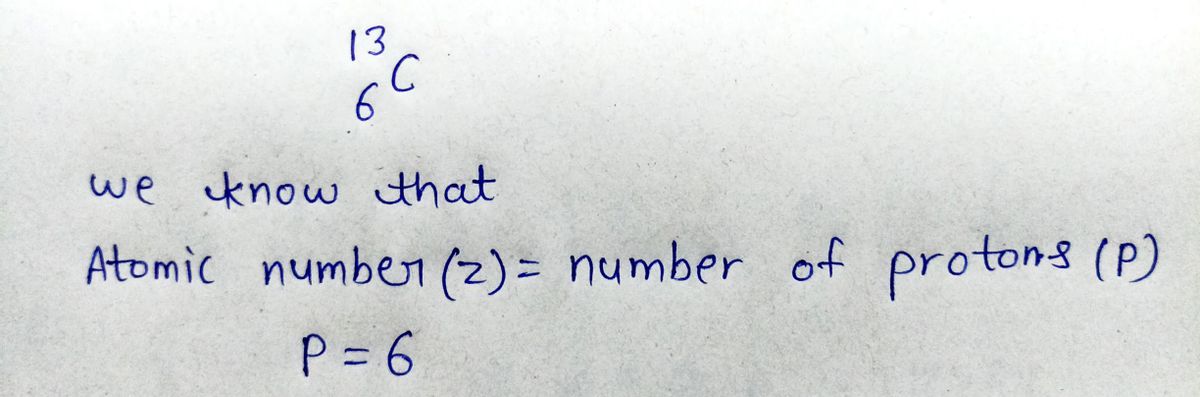 13
C
6
we know that
Atomic number (z) = number of protons (P)
P = 6